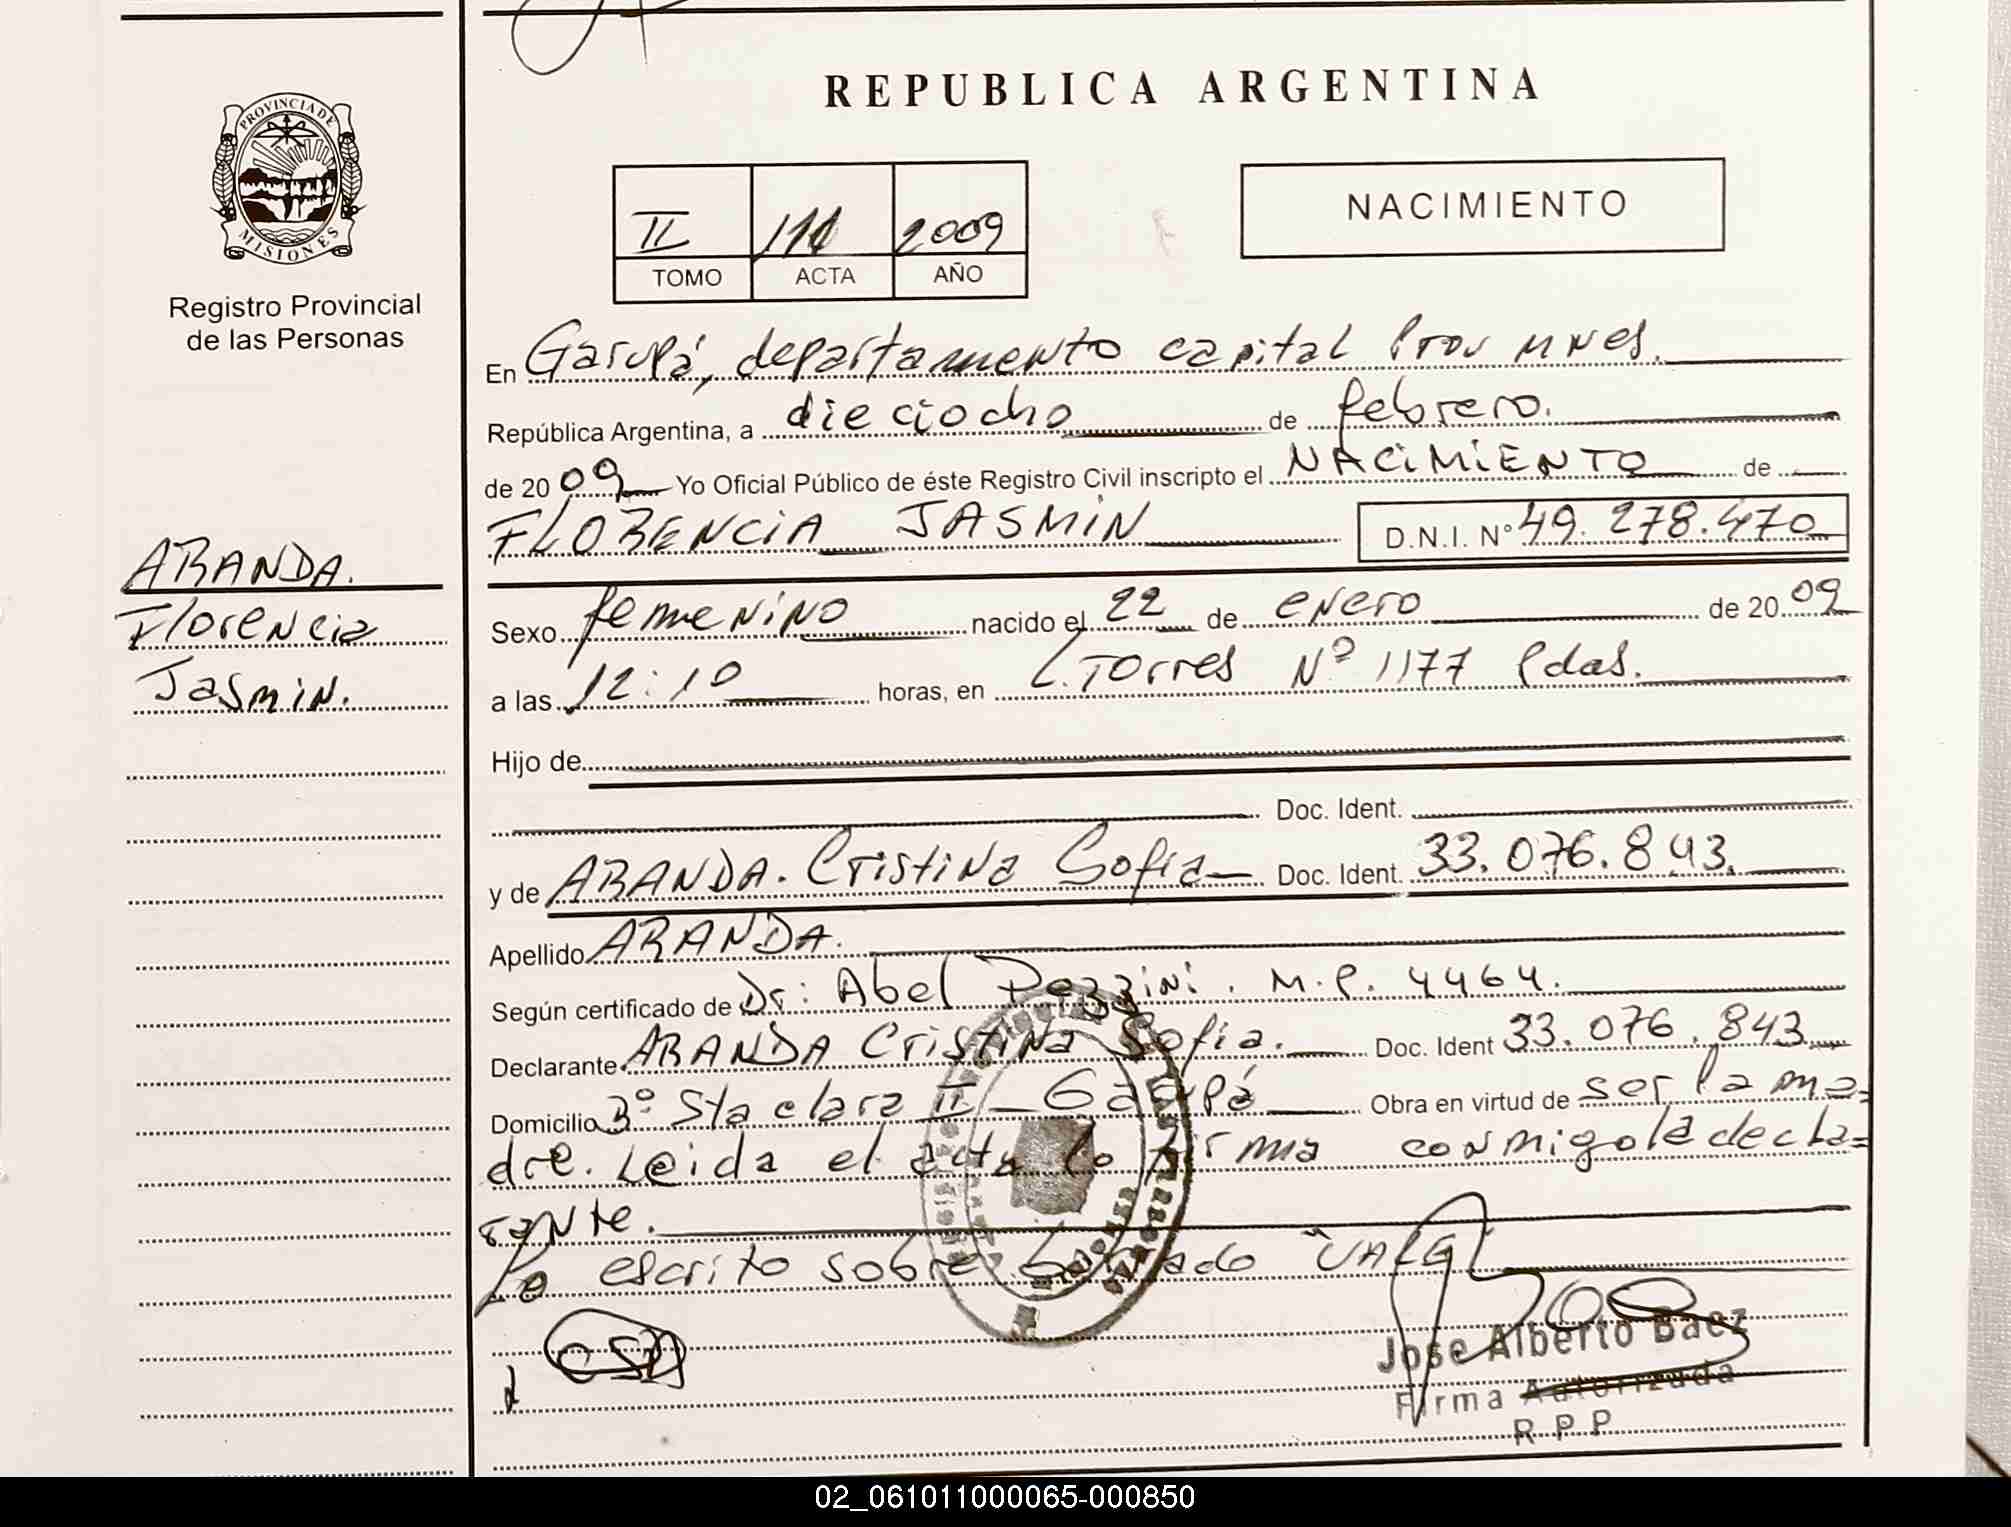 REPUBLICA ARGENTINA
PROVINCIA DE
MISIONES
Registro Provincial
de las Personas
II 2009
TOMO ACTA AÑO
NACIMIENTO
En Garupá, departamento capital Prov Mnes.
República Argentina, a dieciocho de febrero.
de 2009 Yo Oficial Público de éste Registro Civil inscripto el NACIMIENTO de
FLORENCIA JASMIN D.N.I. Nº 49.278.470
ARANDA.
Florencia
Jasmin.
Sexo femenino nacido el 22 de enero de 2009
a las 12:10 horas, en L. Torres Nº 1177 Pdas.
Hijo de
Doc. Ident.
y de ARANDA. Cristina Sofia Doc. Ident. 33.076.843.
Apellido ARANDA.
Según certificado de Dr: Abel Pezzini. M.P. 4464.
Declarante ARANDA Cristina Sofia. Doc. Ident 33.076.843
Domicilio Bº Sta clara II Garupá Obra en virtud de ser la ma=
dre. Leida el acta lo firma conmigo la decla=
rante.
Lo escrito sobre borrado "VALE"
Jose Alberto Baez
Firma Autorizada
R P P
02_061011000065-000850